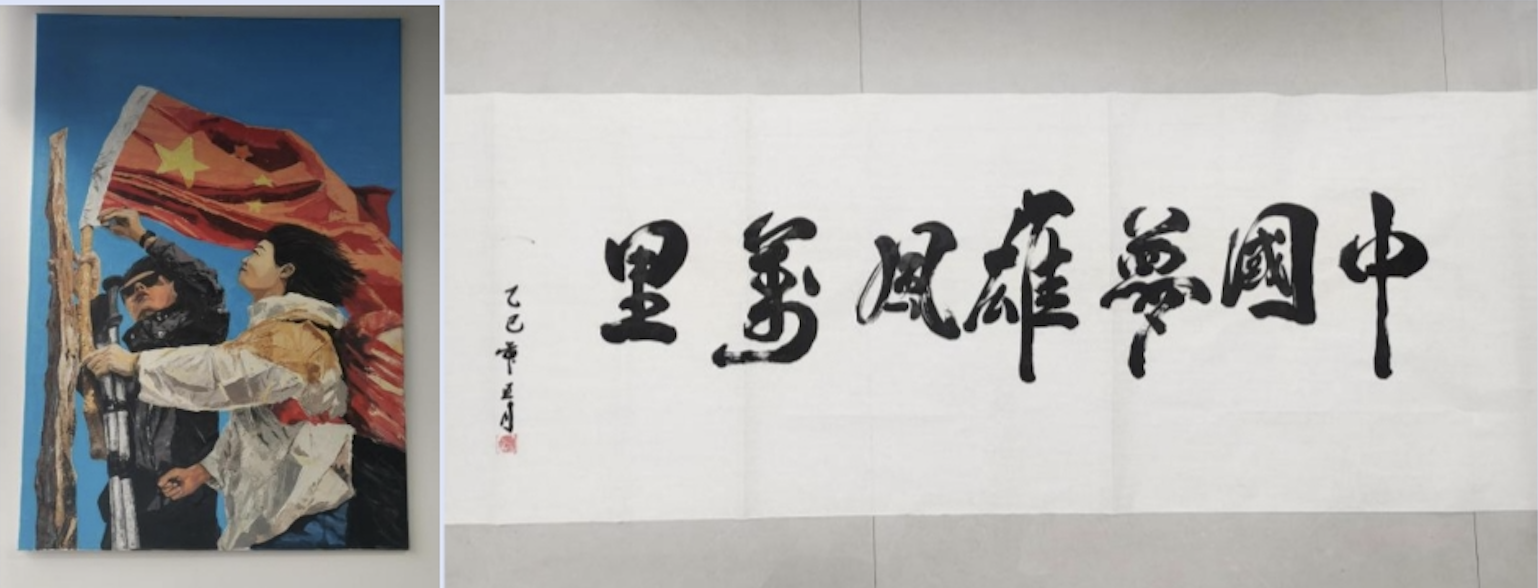 中國夢雄風萬里
乙巳